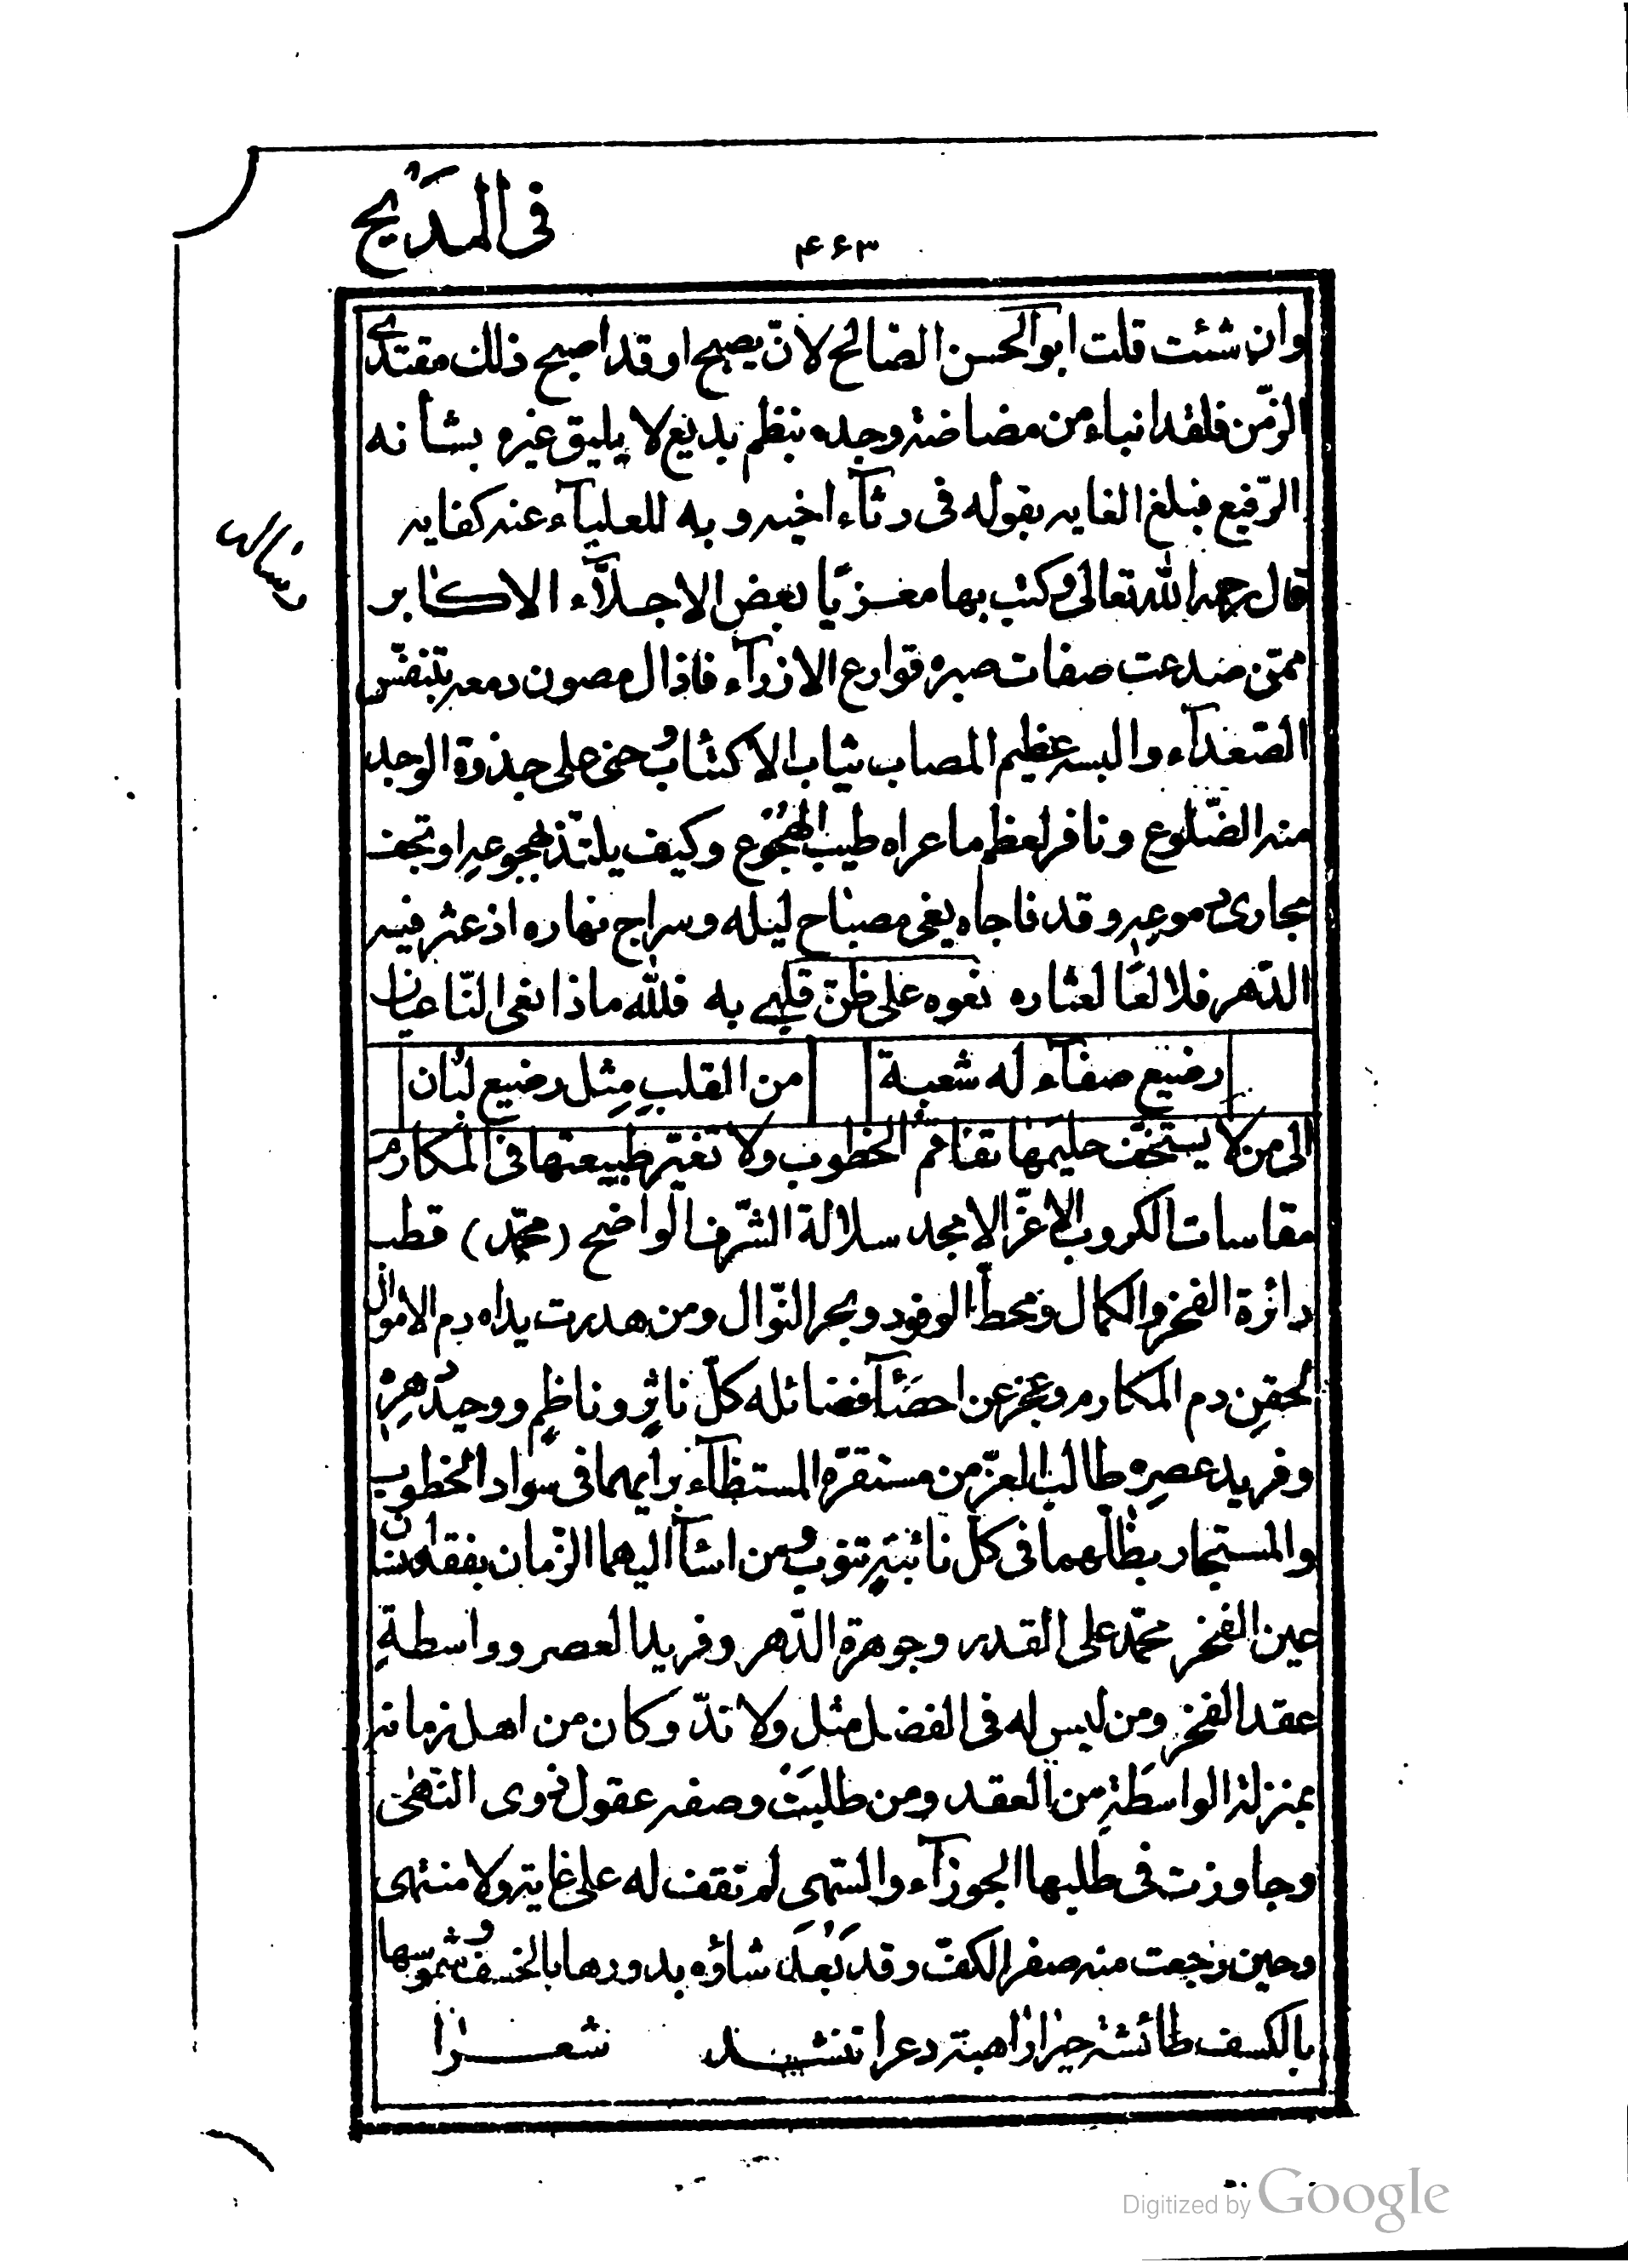 فى المَديح
۴۶۳
وان شئت قلت ابو الحسن الصّالح لانّ يصبح او قد اصبح ذلك مقتدى
الزّمن فلقد انباء من مضاضة وجده بنظم بديع لا يليق غيره بشأنه
الرّفيع فبلغ الغايه بقوله فى رثآء اخيه و به للعليآء عنه كفايه
رساله
قال رحمه الله تعالى وكتب بها معزيًا بعض الاجلاّء الاكابر
ممّن صدعت صفات صبره قوارع الازرآء فاذال مصون دمعه بتنفّس
الصّعدآء والبسه عظيم المصاب ثياب الاكتئاب وحنى على جذوة الوجد
منه الضّلوع ونافر لعظم ما عراه طيب الهُجُوع وكيف يلتذّ بهجوعه او تجف
مجارى دموعه وقد ناجاه بغى مصباح ليله وسراج نهاره اذ عثر فيه
الدّهر فلا لعًا لعثاره نعوه على ظنّ قلبى به فلله ماذا نعى النّاعيان
رضيع صفآء له شعبة من القلبِ مِثل رضيع لبان
الى من لا يستخفّ حليمها تفاقم الخطوب ولا تغيّر طبيعتها فى المكارم
مقاسات الكروب الاغرّ الامجد سلالة الشّرف الواضح (محمّد) قطب
دائرة الفخر والكمال ومحطّ الوفود وبحر النّوال ومن هدرت يداه دم الاموال
لحقنِ دم المكارم وعجز عن احصَآء فضائله كلّ ناثرٍ وناظمٍ ووحيد دهرِهِ
وفريد عصرِه طالب العزّ من مستقرّه المستظآء برايهما فى سواد الخطوب
والمستجار بظلّهما فى كلّ نائبةٍ تنوب ومن اشآ اليهما الزّمان بفقد انسان
عين الفخر محمّد على القدر وجوهرة الدّهر وفريد العصر وواسطةِ
عقد الفخر ومن ليس له فى الفضل مثل ولا ندّ وكان من اهل زمانه
بمنزلة الواسَطةِ من العقد ومن طلبَتْ وصفه عقول ذوى النّهٰى
وجاوزت فى طلبها الجوزآء والسّهى لم تقف له على غاية ولا منتهى
وحين رجعت منه صفر الكفّ وقد بَعُدَ شاؤه بدورها بالخسف وشموسها
بالكسف طائشة حيرا ذاهبة دعرا تنشد شعرا
Digitized by Google